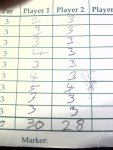 Par Player 1 Player 2 Player
3 2 3
3 3 3
3 3 3
3 4 3
3 3 3
3 4 3
3 5 4
3 2 3
3 3 3
30 28
Marker: